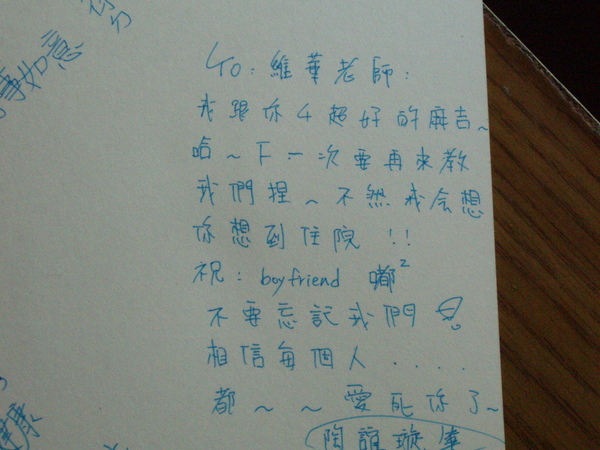 To：維華老師：
我跟你4超好的麻吉~
哈~下一次要再來教
我們捏~不然我会想
你想到住院!!
祝：boyfriend 嘟²
不要忘記我們
相信每個人....
都~~愛死你了~
事如意
你
健康